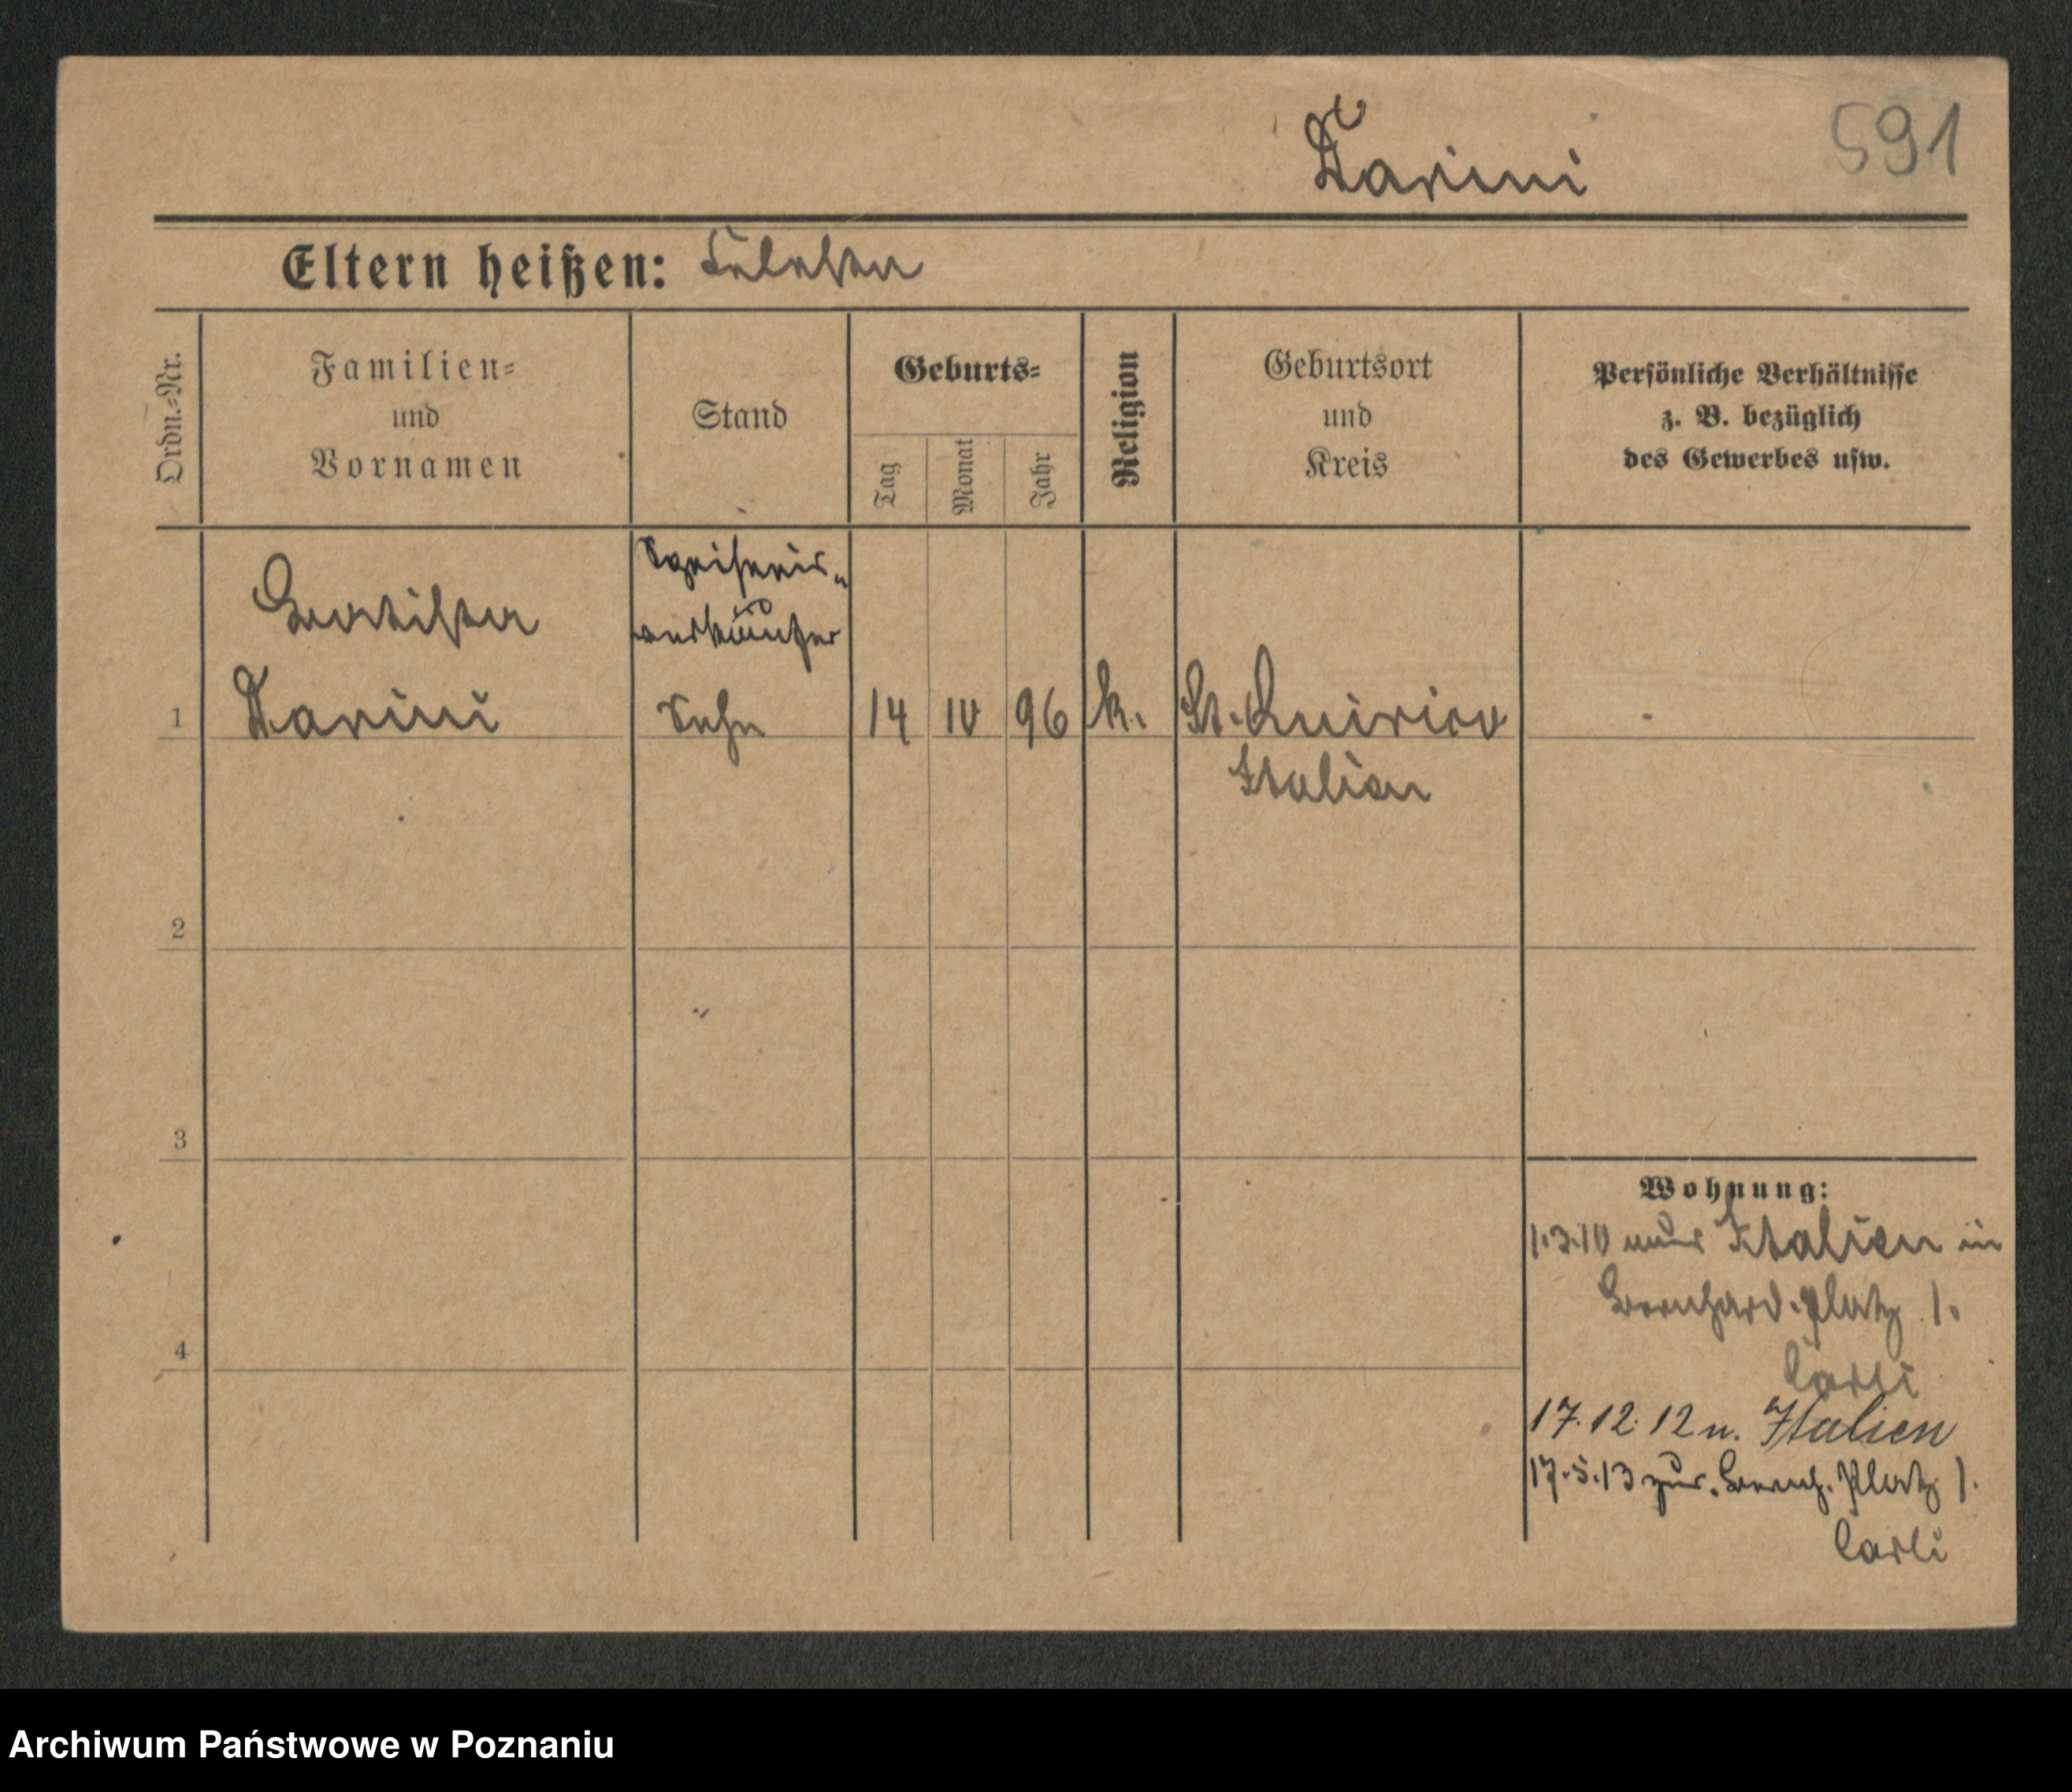 Tarini
591
Eltern heißen: Celeste
Ordn.-Nr.
Familien-
und
Vornamen
Stand
Geburts-
Tag
Monat
Jahr
Religion
Geburtsort
und
Kreis
Persönliche Verhältnisse
z. B. bezüglich
des Gewerbes usw.
Speiseeis-
verkäufer
Battista
1
Tarini
Sohn
14
10
96
k.
St. Quirico
Italien
2
3
4
Wohnung:
1.3.10 aus Italien in
Bernhard. Platz 1.
Carli
17.12.12 n. Italien
17.5.13 zur. Bernh. Platz 1.
Carli
Archiwum Państwowe w Poznaniu